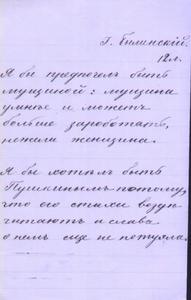 Г. Билинскій.
12 л.
Я бы предпочелъ быть
мущиной: мущина
умнѣе и можетъ
больше заработать,
нежели женщина.
Я бы хотѣлъ быть
Пушкинымъ потому,
что его стихи везде
читаютъ и слава
о немъ еще не потухла.